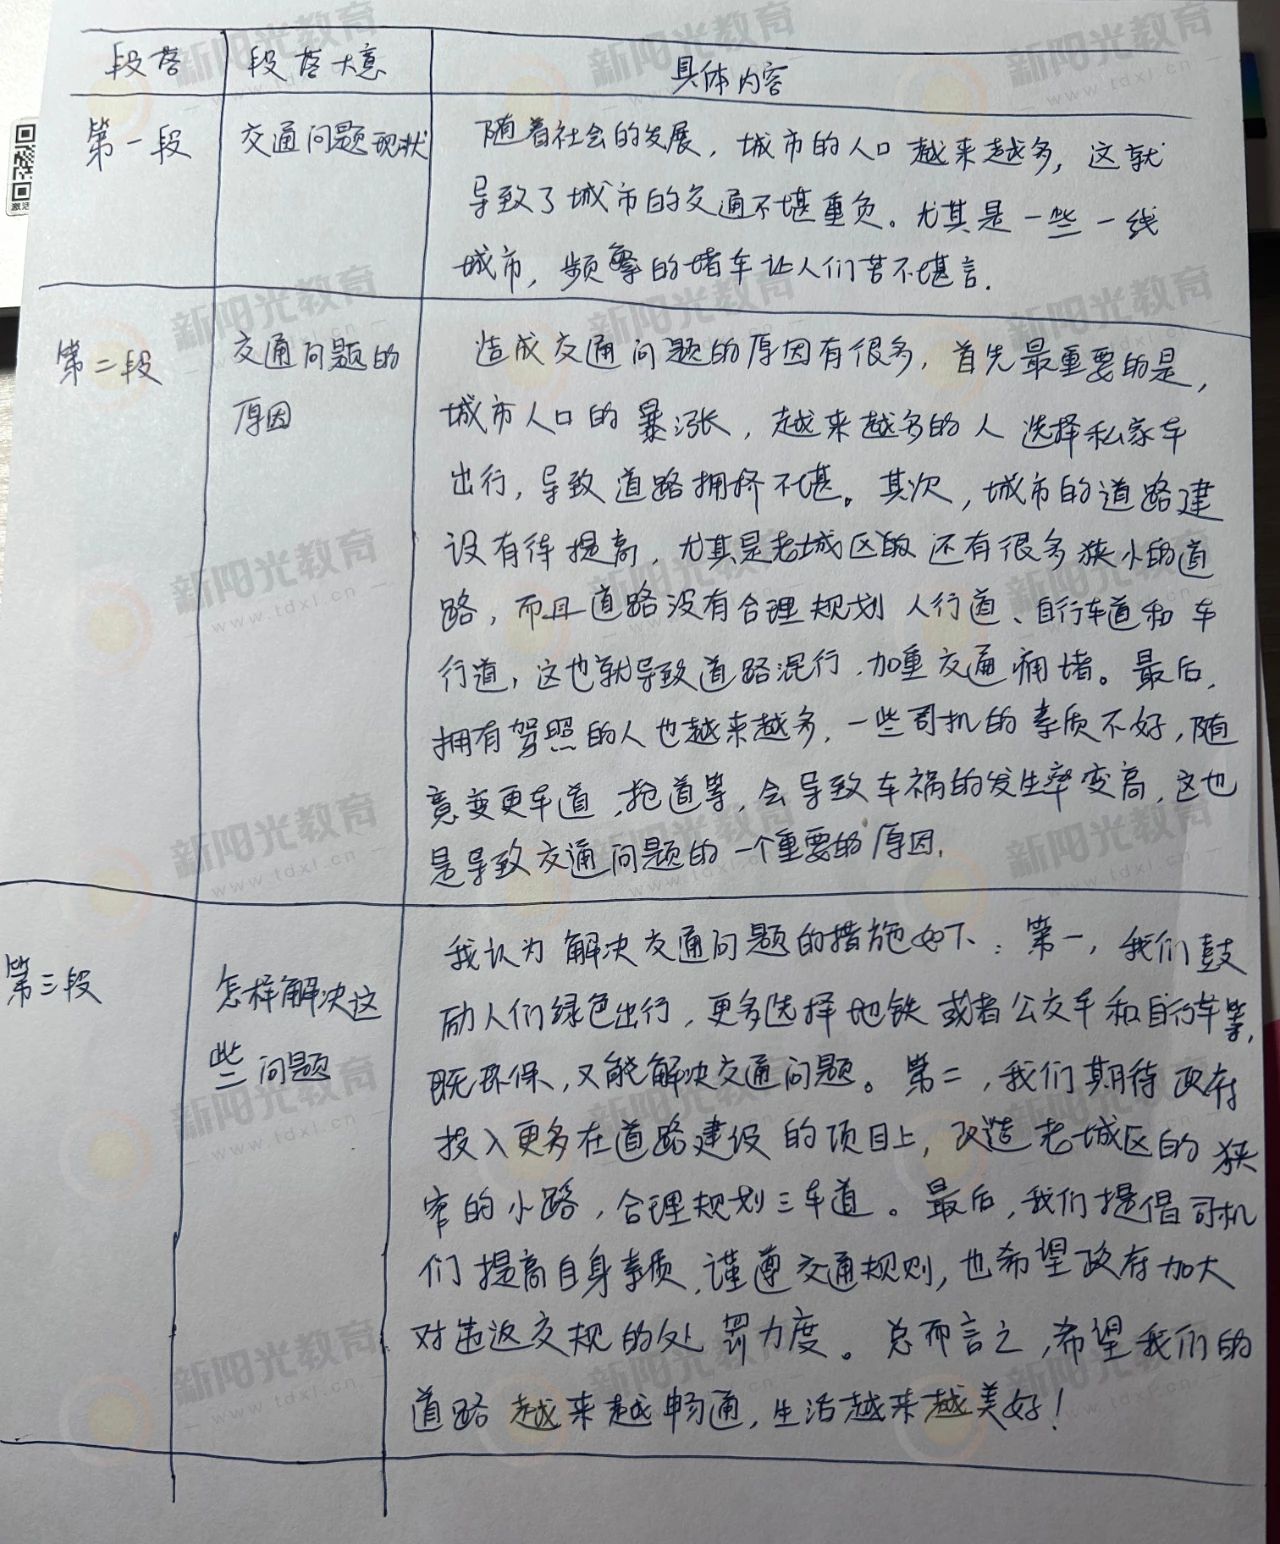 段落 段落大意 具体内容
第一段 交通问题现状 随着社会的发展，城市的人口越来越多，这就
导致了城市的交通不堪重负。尤其是一些一线
城市，频繁的堵车让人们苦不堪言.
第二段 交通问题的 造成交通问题的原因有很多，首先最重要的是，
原因 城市人口的暴涨，越来越多的人选择私家车
出行，导致道路拥挤不堪。其次，城市的道路建
设有待提高，尤其是老城区的还有很多狭小的道
路，而且道路没有合理规划人行道、自行车道和车
行道，这也就导致道路混行，加重交通拥堵。最后，
拥有驾照的人也越来越多，一些司机的素质不好，随
意变更车道，抢道等，会导致车祸的发生率变高，这也
是导致交通问题的一个重要的原因.
第三段 怎样解决这 我认为解决交通问题的措施如下：第一，我们鼓
些问题 励人们绿色出行，更多选择地铁或者公交车和自行车等，
既环保，又能解决交通问题。第二，我们期待政府
投入更多在道路建设的项目上，改造老城区的狭
窄的小路，合理规划三车道。最后，我们提倡司机
们提高自身素质，谨遵交通规则，也希望政府加大
对违返交规的处罚力度。总而言之，希望我们的
道路越来越畅通，生活越来越美好！
新阳光教育
www.tdxl.cn